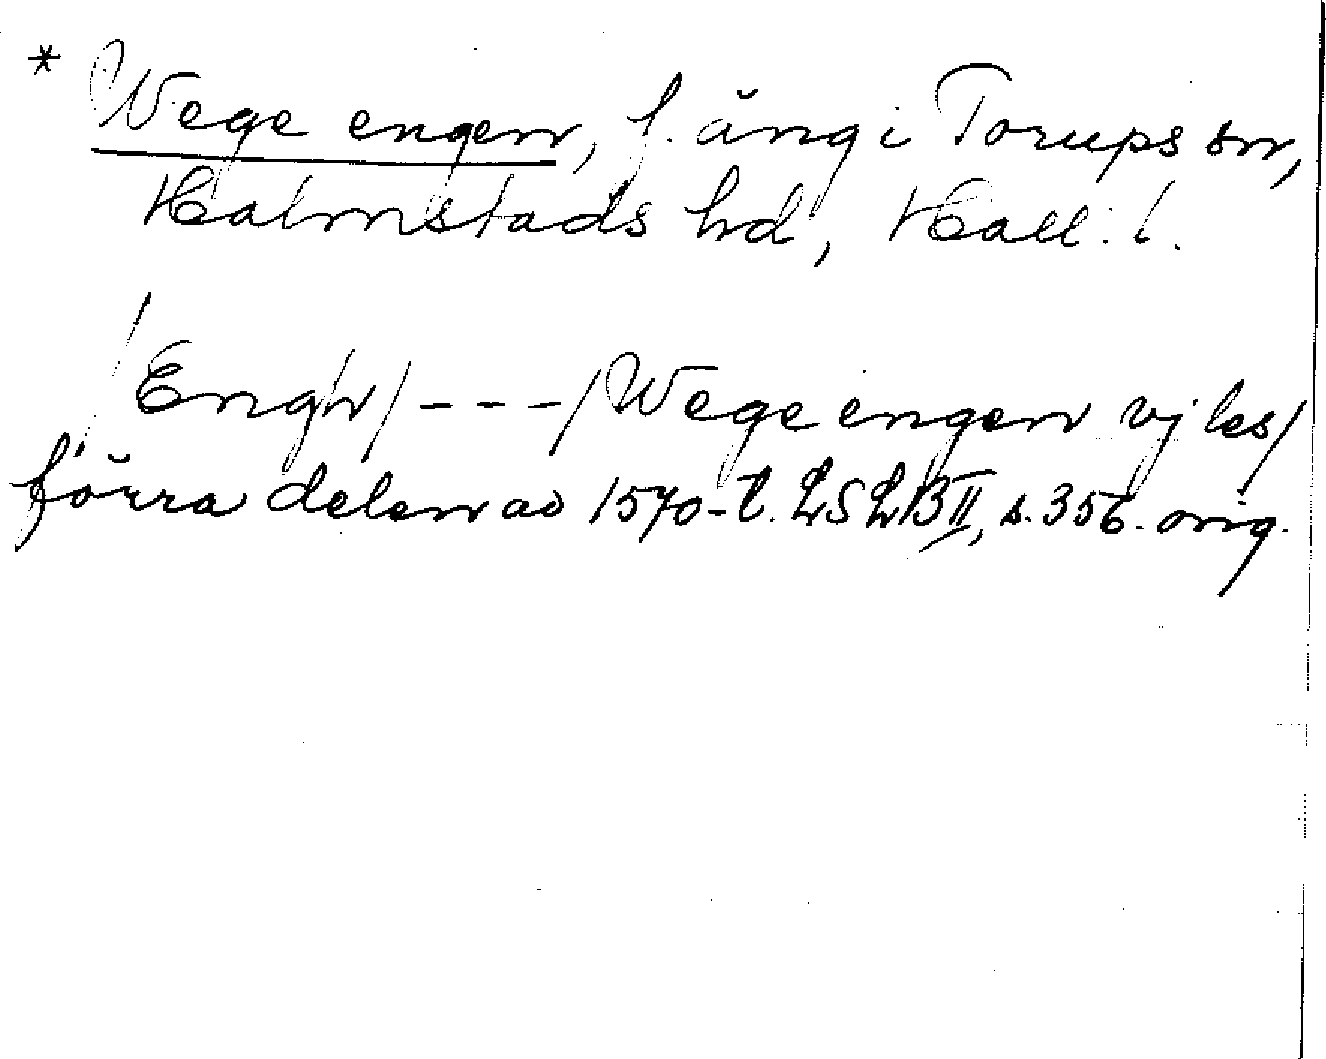 * Wege engenn, f. äng i Torups sn,
Halmstads hd, Hall. l.
/Engh/ - - - /Wege engenn vj les/
förra delen av 1570-t. LSLB II, s. 356. orig.